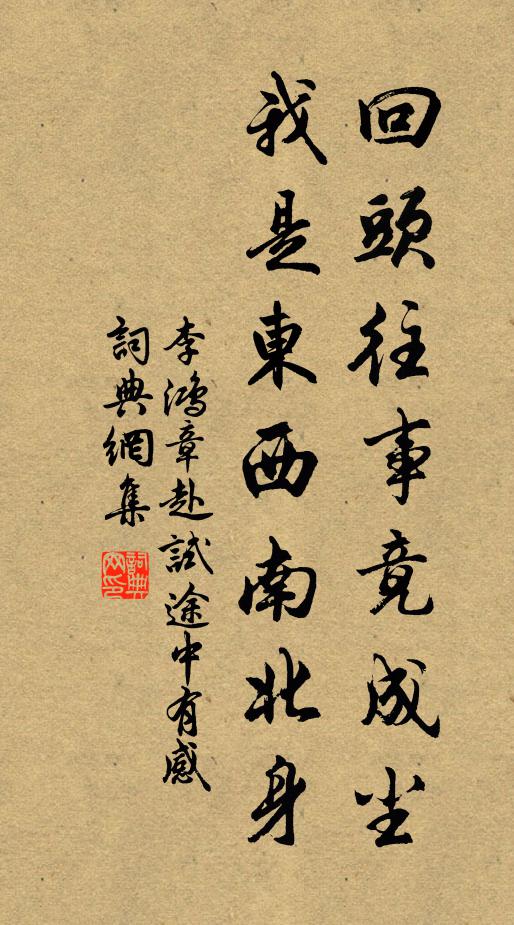 回頭往事竟成尘
我是東西南北身
李鴻章赴試途中有感
詞典網集
詞典網印